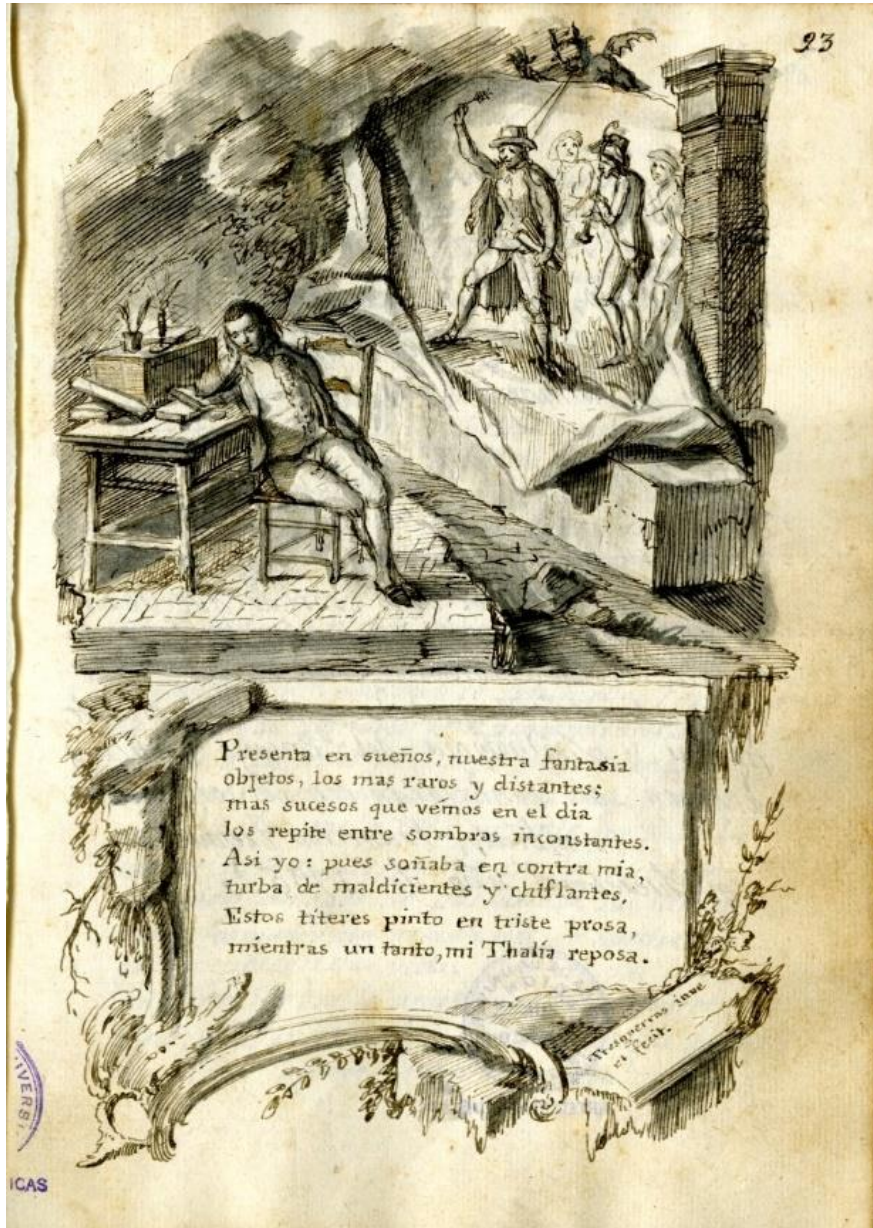 23
Presenta en sueños, nuestra fantasia
objetos, los mas raros y distantes;
mas sucesos que vémos en el dia
los repite entre sombras inconstantes.
Asi yo: pues soñaba en contra mia,
turba de maldicientes y chiflantes,
Estos titeres pinto en triste prosa,
mientras un tanto, mi Thalía reposa.
Tresguerras inve
et fecit.
IVERSI
ICAS